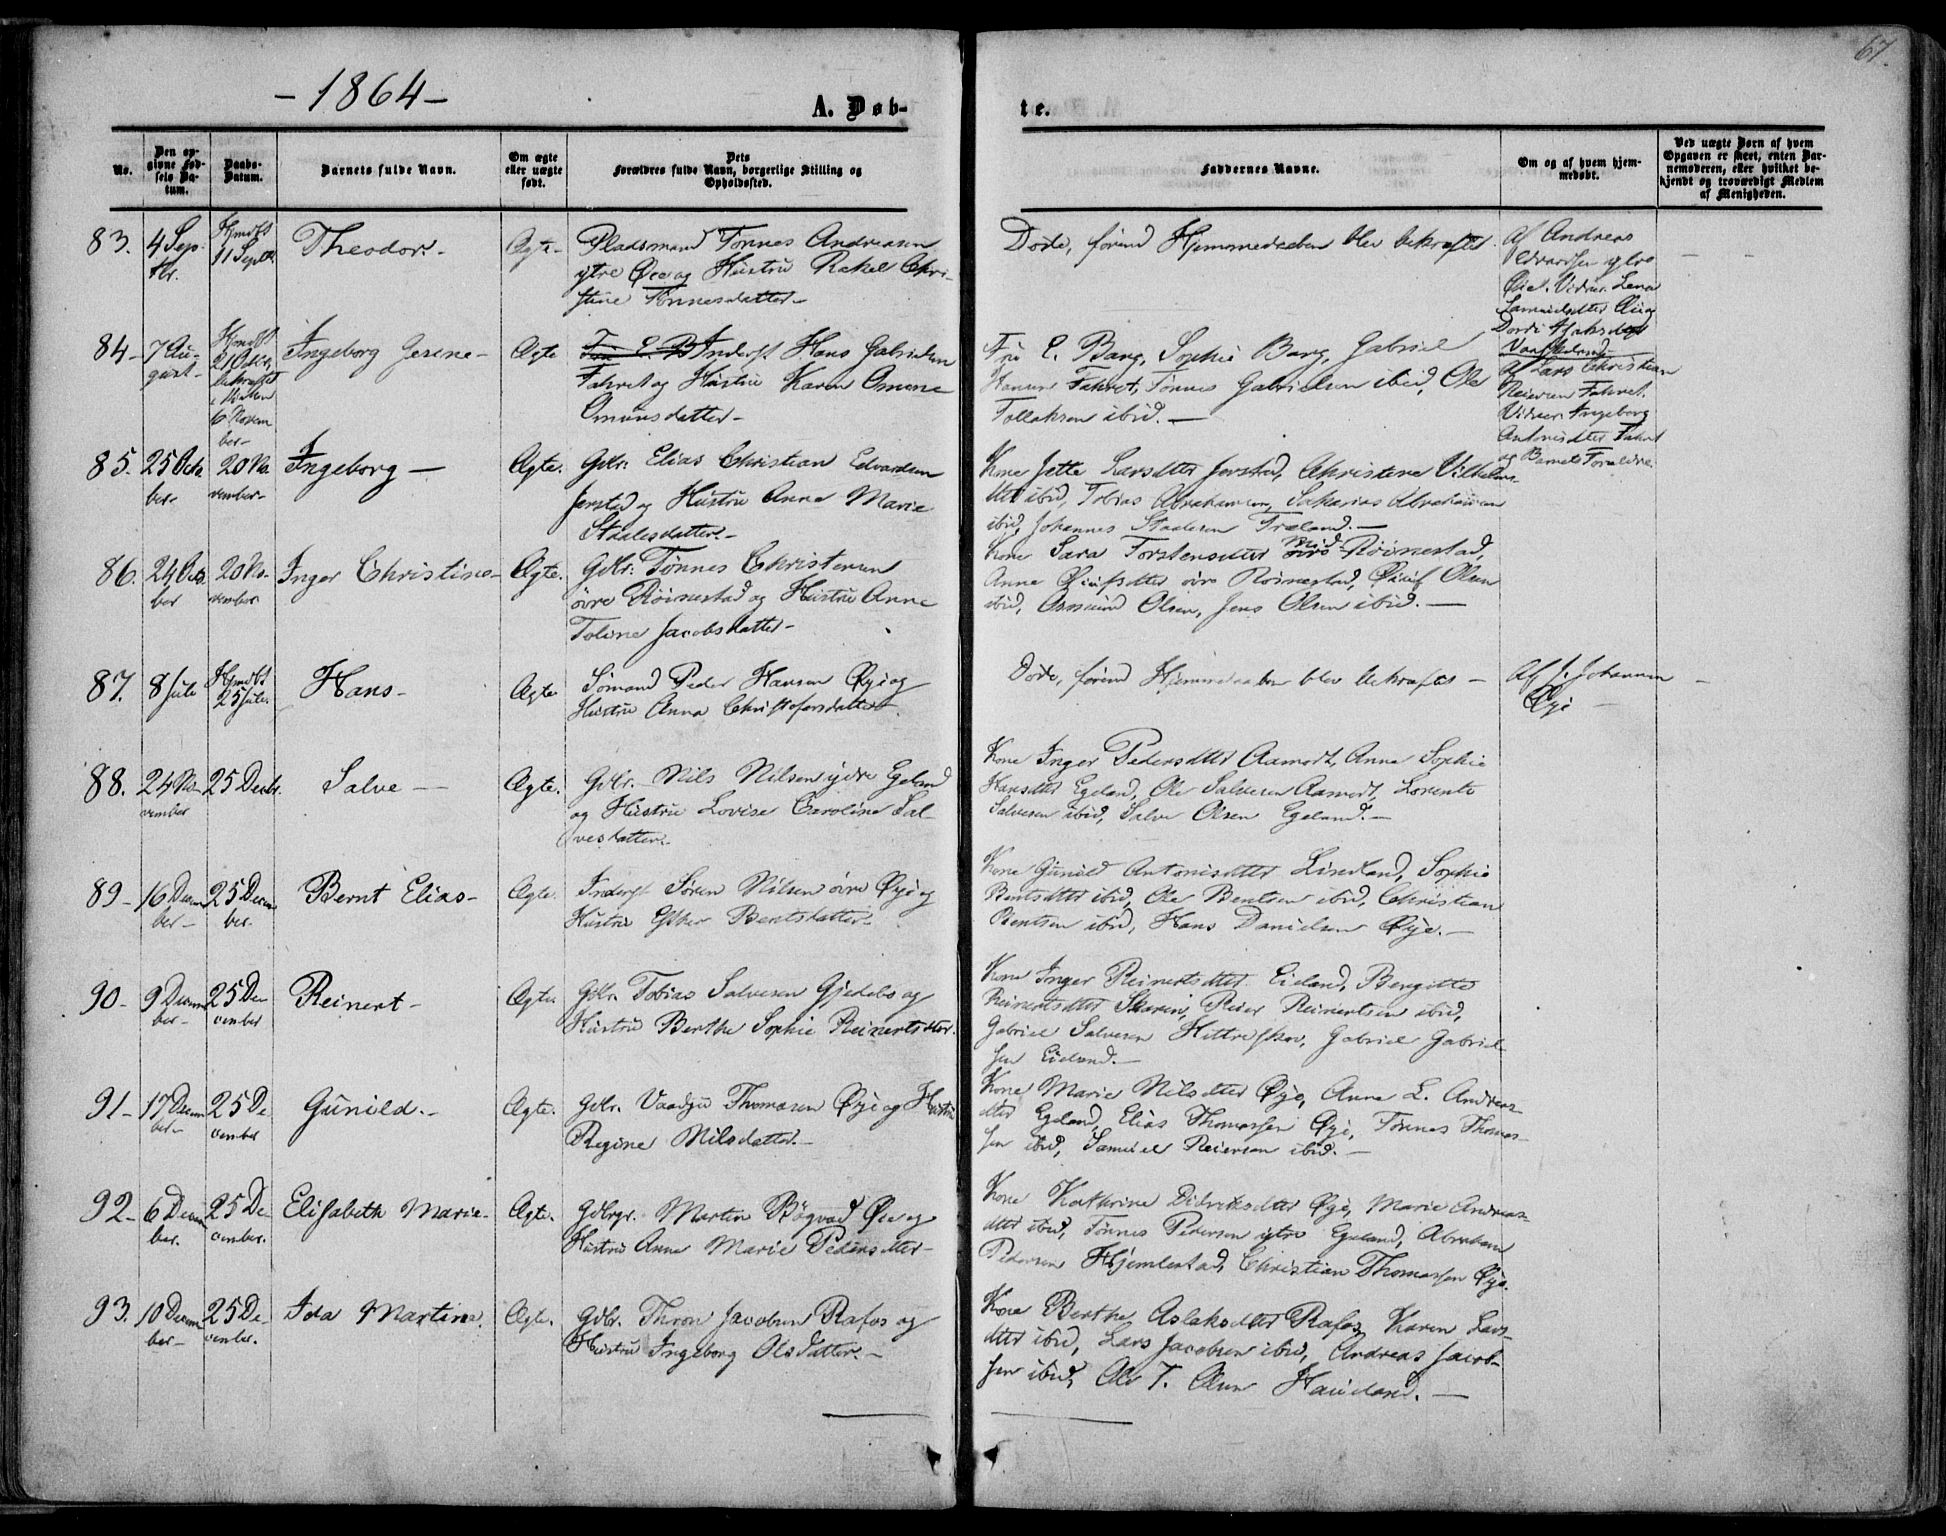 67.
- 1864 -
A. Døb-
te.
No.
Den op-
givne Fød-
sels Da-
tum.
Daabs-
Datum.
Barnets fulde Navn.
Om ægte
eller uægte
født.
Dets
Forældres fulde Navn, borgerlige Stilling og
Opholdssted.
Faddernes Navne.
Om og af hvem hjem-
medøbt.
Ved uægte Børn af hvem
Opgaven er skeet, enten Bar-
nemoderen, eller hvilket be-
kjendt og troværdigt Medlem
af Menigheden.
83. 4 Sep-
tbr.
Hjmdbt
11 Septbr.
Theodor. -
Ægte -
Pladsmand Tønnes Andreasen
ytre Øie og Hustru Rakel Chri-
stine Tønnesdatter -
Døde, førend Hjemmedaaben blev bekræftet
Af Andreas
Edvardsen ytre
Øie. Vidner. Lena
Samuelsdtter Øie og
84 - 7 Au-
gust -
Hjmdbt
21 Octbr,
bekræftet
i Kirken
6 Novem
ber -
Ingeborg Gesine -
Ægte
Inderst Hans Gabrielsen
Fahret og Hustru Karen Omine
Omunsdatter -
Fru E. Bang, Sophie Bang, Gabriel
Hansen Fahret, Tønnes Gabrielsen ibid, Ole
Tollaksen ibid. -
Af Lars Christian
Reiersen Fahret.
Vidner. Ingeborg
Antonisdtter Fahret
og Barnets Forældre
85. 25 Octo
ber -
20 No-
vember -
Ingeborg -
Ægte.
Gdbr. Elias Christian Edvardsen
Jerstad og Hustru Anne Marie
Staalesdatter. -
Kone Jette Larsdtter Jerstad, Christene Vilhelms-
dtter ibid, Tobias Abrahamsen, Sakarias Abrahamsen
ibid, Johannes Staalesen Træland. -
86. 24 Octo
ber
20 No-
vember
Inger Christine -
Ægte.
Gdbr. Tønnes Christensen
øvre Røinestad og Hustru Anne
Toline Jacobsdatter -
Kone Sara Torstensdtter Mid- Røinestad,
Anne Øiufsdtter øvre Røinestad, Øiuf Olsen
ibid, Osmund Olsen, Jens Olsen ibid. -
87. 8 Juli
Hjmdbt
25 Juli.
Hans -
Ægte
Sømand Peder Hansen Øye og
Hustru Anna Christofersdatter -
Døde, førend Hjemmedaaben blev bekræftet -
Af J. Johannsen
Øye -
88. 24 No-
vember
25 Decbr.
Salve -
Ægte.
Gdbr. Nils Nilsen ydre Egeland
og Hustru Lovise Caroline Sal-
vesdatter.
Kone Inger Pedersdtter Aamodt, Anne Sophie
Hansdtter Egeland, Ole Salvesen Aamodt, Lorents
Salvesen ibid, Salve Olsen Egeland. -
89 - 16 Decem
ber -
25 Decem
ber.
Bernt Elias -
Ægte.
Inderst Søren Nilsen øvre Øye og
Hustru Esther Bentsdatter -
Kone Gunild Antonisdtter Lindland, Sophie
Bentsdtter ibid, Ole Bentsen ibid, Christian
Bentsen ibid, Hans Danielsen Øye. -
90 - 9 Decem
ber -
25 De-
cember
Reinert -
Ægte.
Gdbr. Tobias Salvesen Gjedebo og
Hustru Berthe Sophie Reinertsdtter.
Kone Inger Reinertsdtter Eieland, Bergitte
Reinertsdtter Skarin, Reier Reinertsen ibid,
Gabriel Salvesen Hitreskov, Gabriel Gabriel-
sen Eieland. -
91 - 17 Decem
ber -
25 De
cember
Gunild. -
Ægte.
Gdbr. Thomasen Øye og Hustru
Regine Nilsdatter. -
Kone Marie Nilsdtter Øye, Anne L. Andreas-
dtter Egeland, Elias Thomassen Øye, Tønnes Thomas-
sen ibid, Samuel Reiersen ibid. -
92 - 6 Decem
ber.
25 De-
cember.
Elisabeth Marie -
Ægte.
Gdbrgr. Martin Bøgvad Øie og
Hustru Anne Marie Pedersdtter -
Kone Kathrine Didriksdtter Øye, Marie Andreas-
dtter ibid, Tønnes Pedersen ytre Egeland, Abraham
Pedersen Hjemlestad, Christian Thomassen Øye.
93. 10 Decem
ber -
25 De-
cember.
Ida Martine.
Ægte.
Gdbr. Thron Jacobsen Rafos og
Hustru Ingeborg Olsdatter. -
Kone Berthe Aslaksdtter Rafos, Karen Lars-
dtter ibid, Lars Jacobsen ibid, Andreas Jacob-
sen ibid, Ole T. Olsen Haugland. -